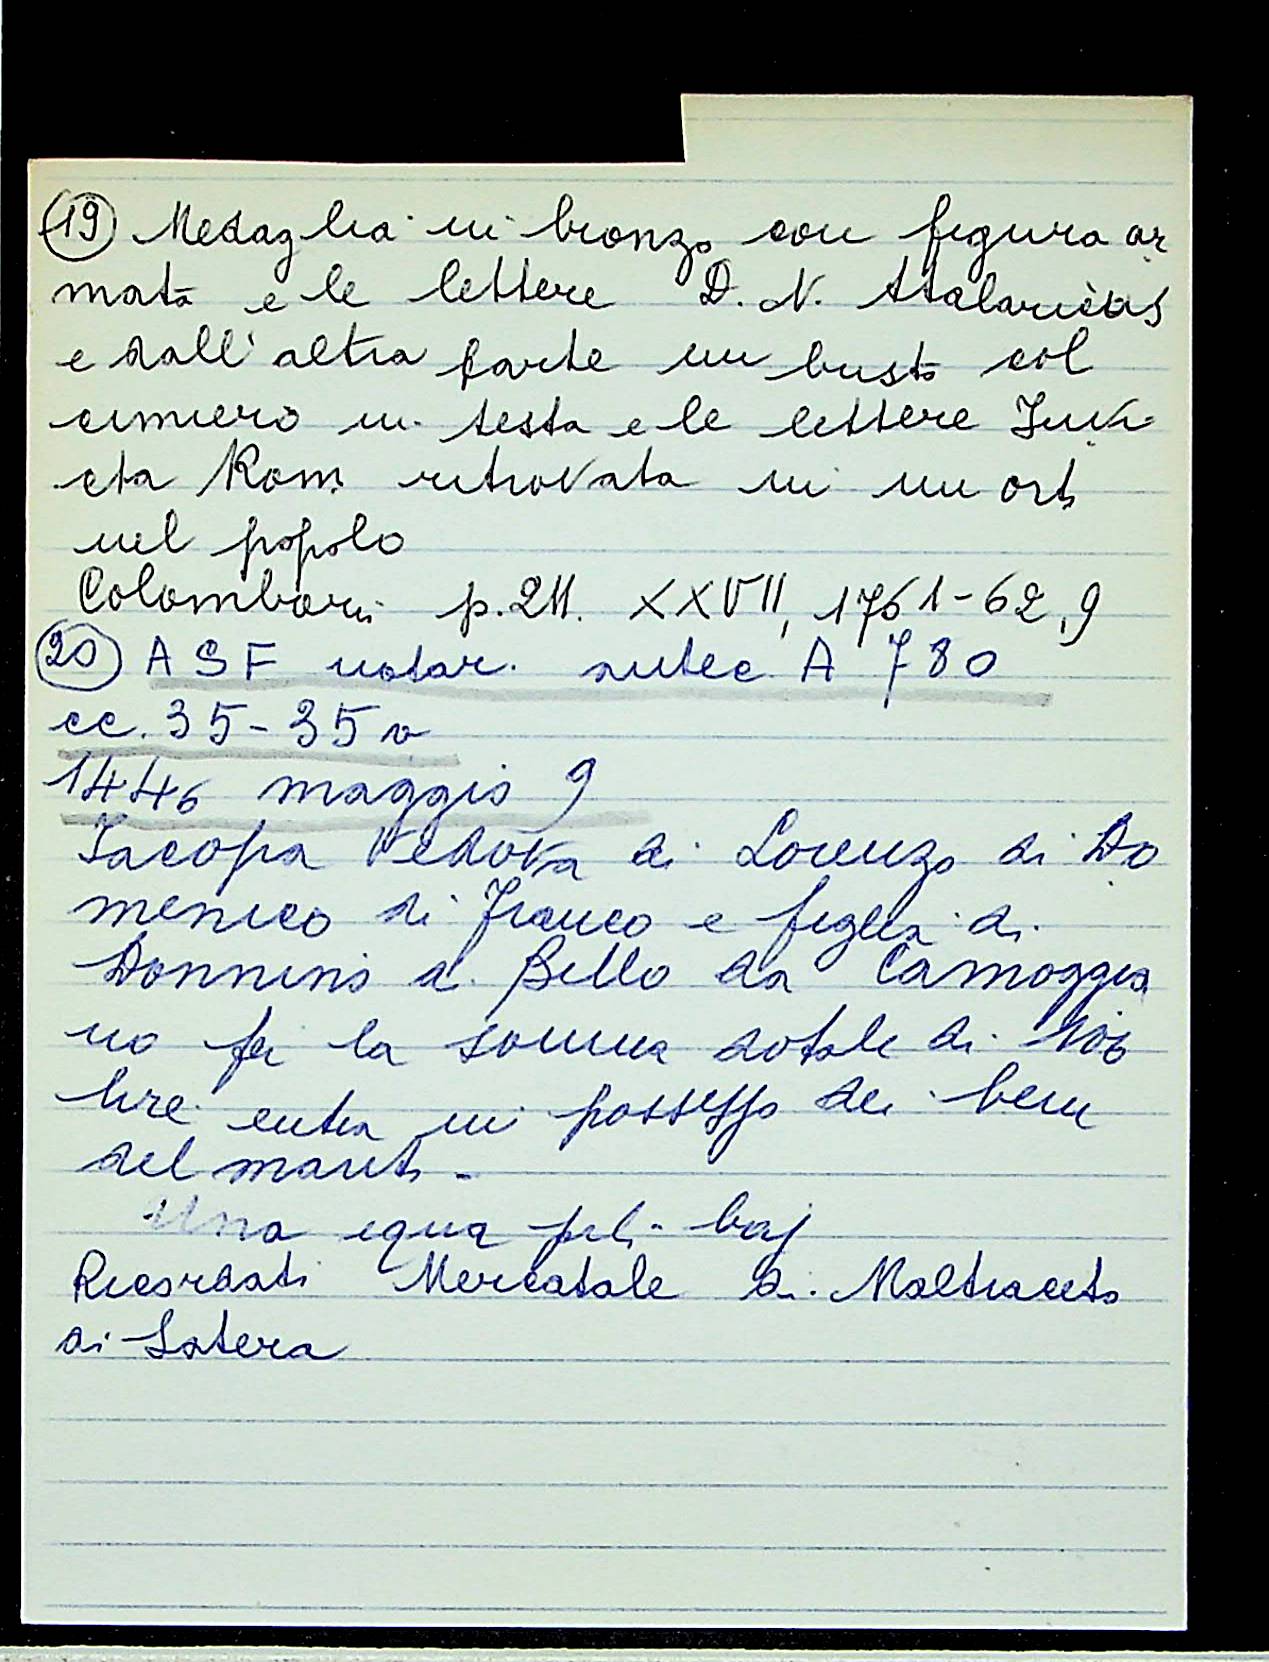 (19) Medaglia in bronzo con figura ar
mata e le lettere D. N. Atalaricus
e dall'altra parte un busto col
cimiero in testa e le lettere Invi
cta Rom. ritrovata in un orto
nel popolo
Colombari p. 211. XXVII, 1761-62, 9
(20) ASF notar. antec. A 780
cc. 35-35v
1446 maggio 9
Jacopa vedova di Lorenzo di Do
menico di Franco e figlia di
Donnino di Bello da Camoggia
no per la somma dotale di
lire entra in possesso dei beni
del marito -
Una equa
Ricordati Mercatale di Maltraceto
di Latera